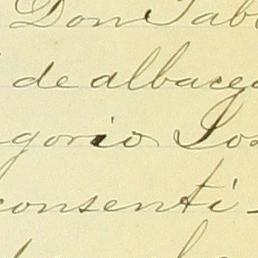 Don Pab
de albacea
gorio Los
consenti-